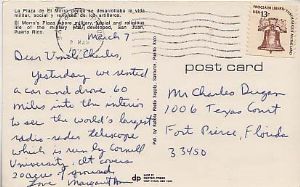 La Plaza de El Morro donde se desarrollaba la vida
militar, social y religiosa de los artilleros.
El Morro's Plaza where military, social and religious
life of the San Juan,
Puerto Rico.
March 7
Dear Uncle Charles,
Yesterday we rented
a car and drove 60
miles into the interior
to see the world's largest
radio-radar telescope
which is run by Cornell
University. It covers
20 acres of ground.
Love Margaret
13c
post card
Mr Charles Dugan
1006 Texas Court
Fort Pierce, Florida
33450
dp